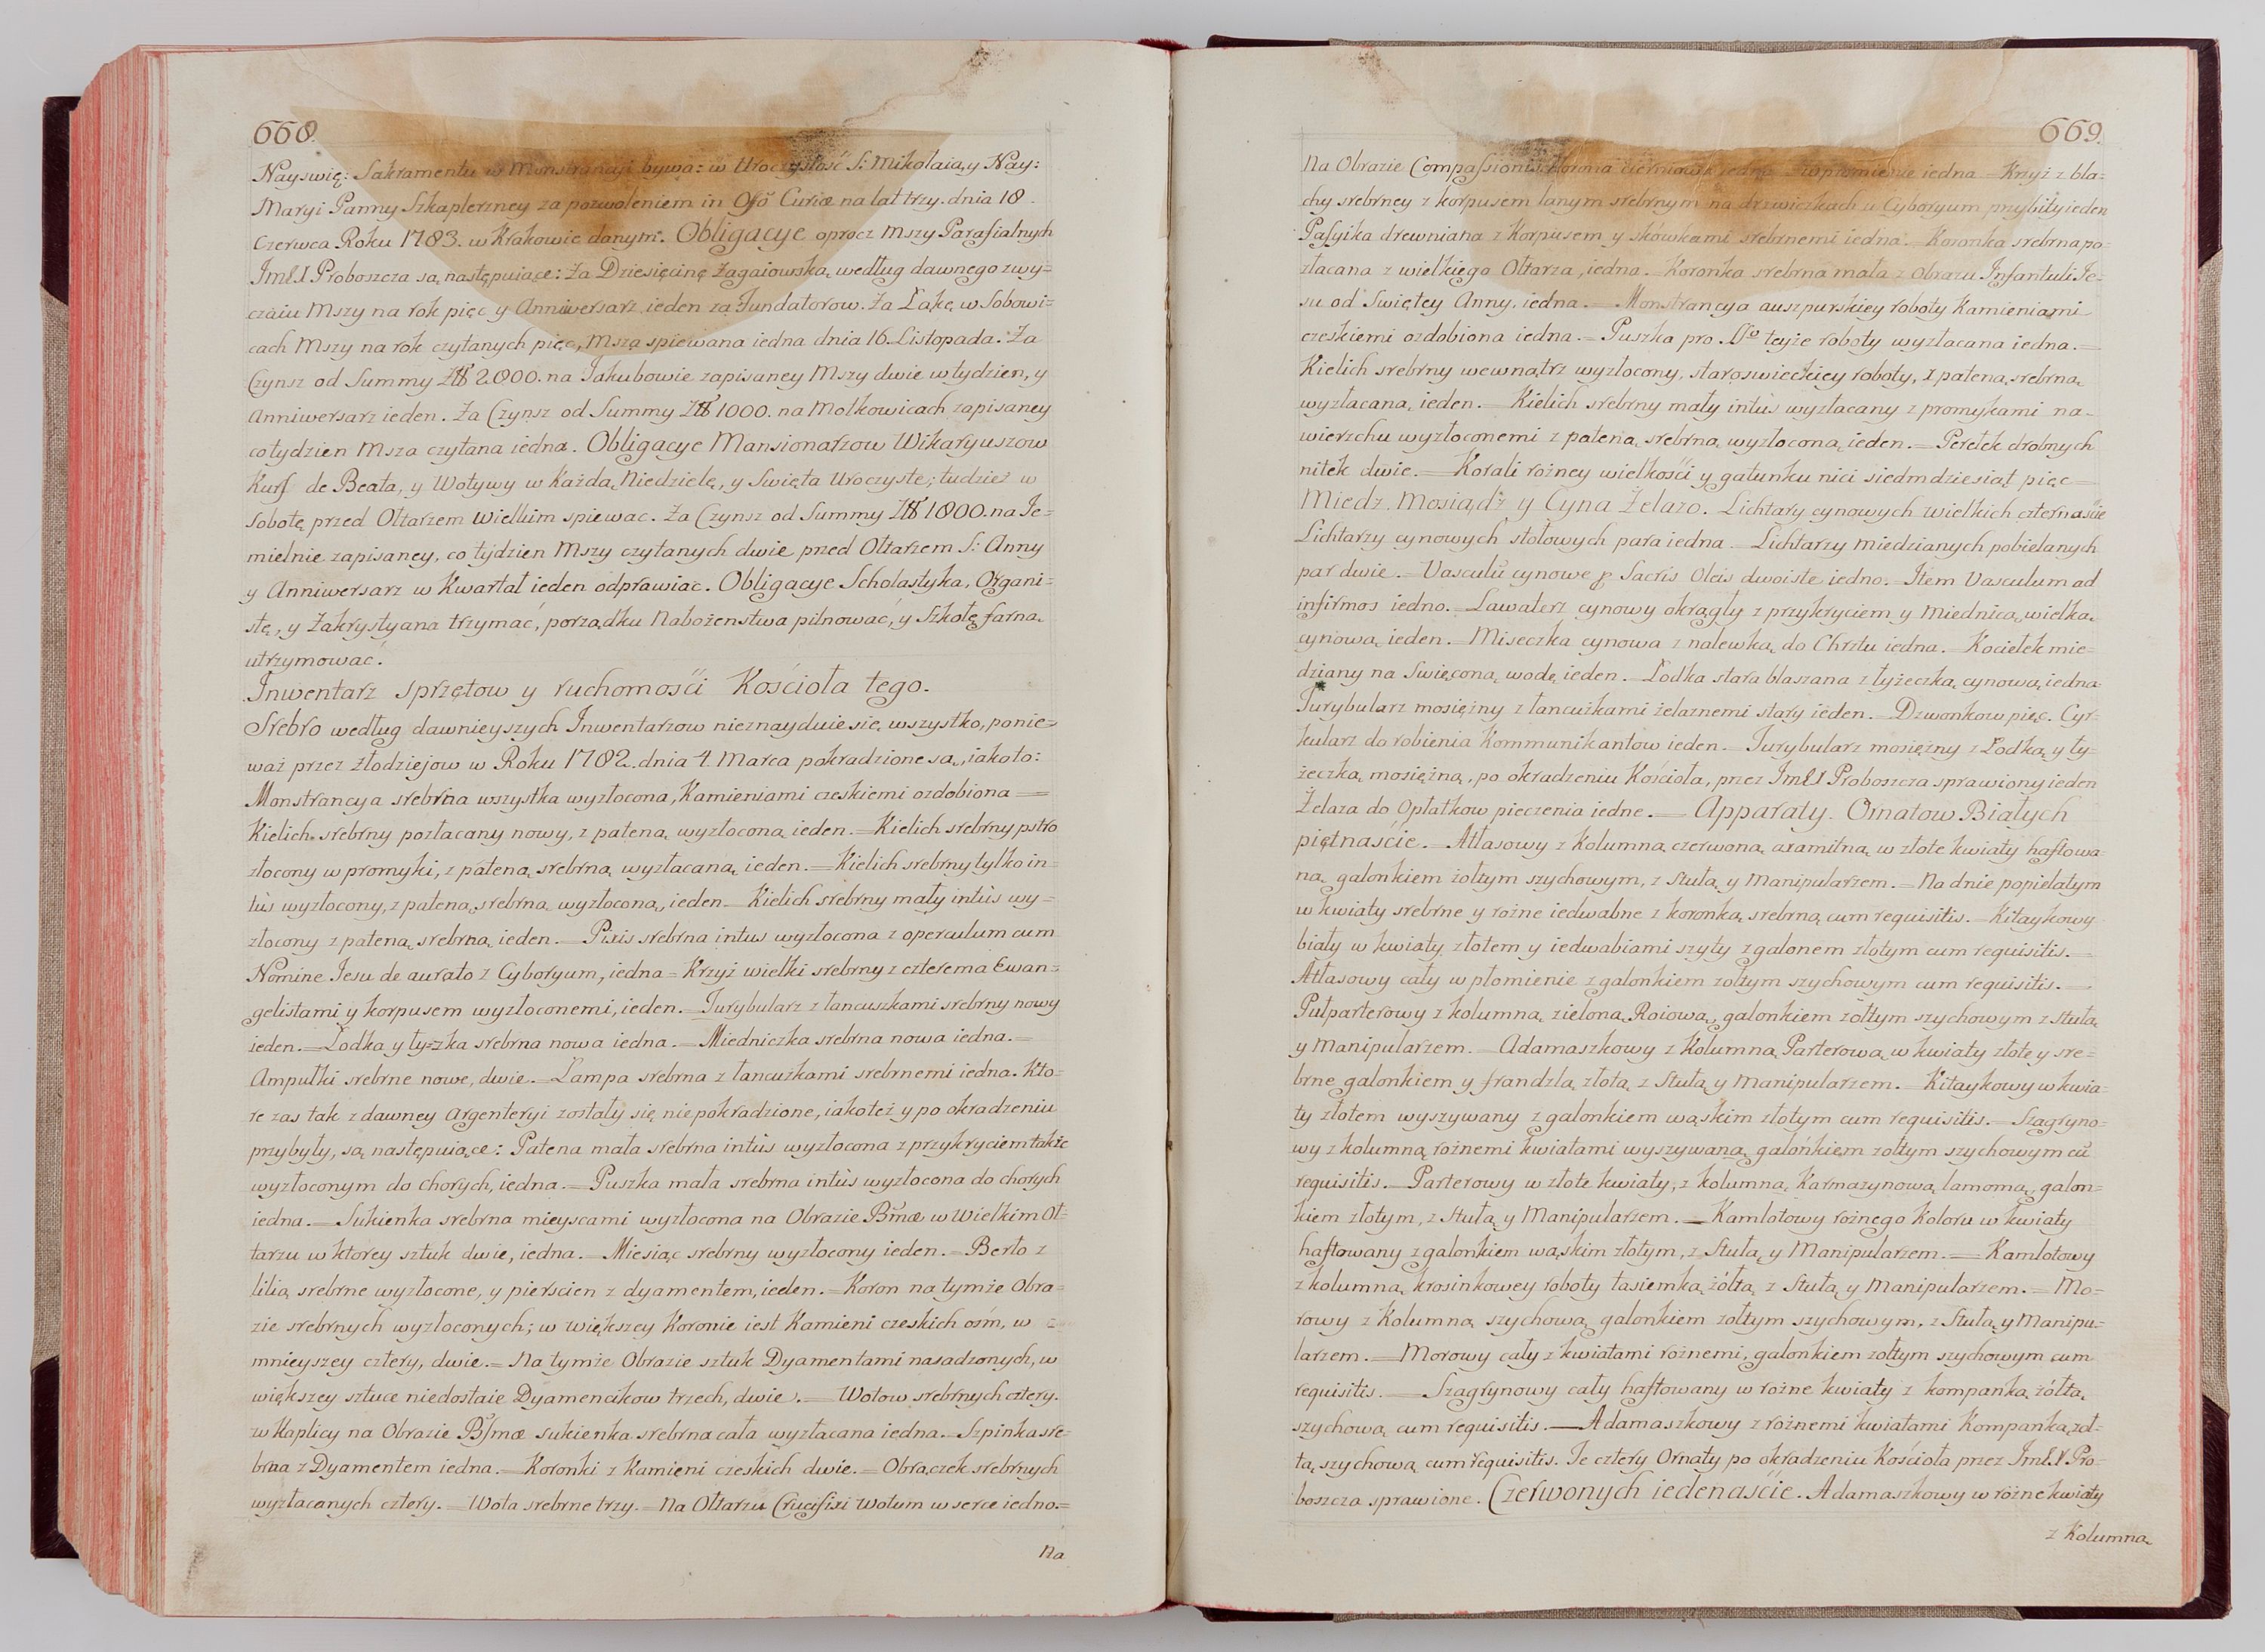 668.
Nayswię: Sakramentu w Monstrancyi bywa: w Uroczystość S: Mikołaia, y Nay:
Maryi Panny Szkaplerzney za pozwoleniem in Offō Curiæ na lat trzy. dnia 18.
Czerwca Roku 1783. w Krakowie danym. Obligacye oprocz Mszy Parafialnych
Proboszcza są następuiące: Za Dziesięcinę Zagaiowską według dawnego zwy=
czaiu Mszy na rok pięc y Anniwersarz ieden za Fundatorow. Za Łąkę w Sobowi=
cach Mszy na rok czytanych pięc, Mszą spiewana iedna dnia 16. Listopada. Za
Czynsz od Summy Złł 2000. na Jakubowie zapisaney Mszy dwie w tydzien, y
Anniwersarz ieden. Za Czynsz od Summy Złł 1000. na Motkowicach zapisaney
co tydzien Msza czytana iedna. Obligacye Mansionarzow Wikaryuszow
Kurs de Beata, y Wotywy w Każdą Niedzielę, y Swięta Uroczyste; tudzież w
Sobotę przed Ołtarzem Wielkim spiewac. Za Czynsz od Summy Złł 1800. na Je=
mielnie zapisaney, co tydzien Mszy czytanych dwie przed Ołtarzem S: Anny
y Anniwersarz w Kwartał ieden odprawiac. Obligacye Scholastyka, Organi=
stę, y Zakrystyana trzymać, porządku Nabożenstwa pilnować, y Szkołę farną
utrzymować.
Inwentarz sprzętow y ruchomości Kościoła tego.
Srebro według dawnieyszych Inwentarzow nieznayduie się wszystko, ponie=
waż przez złodziejow w Roku 1782. dnia 4. Marca pokradzione są, iako to:
Monstrancya srebrna wszystka wyzłocona, Kamieniami czeskiemi ozdobiona =
Kielich srebrny pozłacany nowy, z pateną wyzłoconą ieden. = Kielich srebrny pstro
złocony w promyki, z pateną srebrną wyzłacaną ieden. = Kielich srebrny tylko in=
tùs wyzłocony, z pateną srebrną wyzłoconą, ieden = Kielich srebrny mały intùs wy=
złocony z pateną srebrną ieden. = Pixis srebrna intus wyzłocona z operculum cum
Nomine Jesu de aurato z Cyboryum, iedna = Krzyż wielki srebrny z czterema Ewan=
gelistami y korpusem wyzłoconemi, ieden. = Turybularz z łancuszkami srebrny nowy
ieden. = Łodka y łyżka srebrna nowa iedna. = Miedniczka srebrna nowa iedna. =
Ampułki srebrne nowe, dwie. = Lampa srebrna z łancużkami srebrnemi iedna. Kto=
re zas tak z dawney Argenteryi zostały się nie pokradzione, iakoteż y po okradzeniu
przybyły, są następuiące: Patena mała srebrna intùs wyzłocona z przykryciem takie
wyzłoconym do chorych, iedna. = Puszka mała srebrna intùs wyzłocona do chorych
iedna. = Sukienka srebrna mieyscami wyzłocona na Obrazie Bm̃æ w Wielkim Oł=
tarzu w ktorey sztuk dwie, iedna. = Miesiąc srebrny wyzłocony ieden. = Berło z
lilią srebrne wyzłocone, y pierscien z dyamentem, ieden. = Koron na tymże Obra=
zie srebrnych wyzłoconych; w większey Koronie iest Kamieni czeskich ośm, w
mnieyszey cztery, dwie. = Na tymże Obrazie sztuk Dyamentami nasadzonych, w
większey sztuce niedostaie Dyamencikow trzech, dwie. = Wotow srebrnych cztery.
w Kaplicy na Obrazie Bm̃æ sukienka srebrna cała wyzłacana iedna. = Szpinka sre=
brna z Dyamentem iedna. = Koronki z Kamieni czeskich dwie. = Obrączek srebrnych
wyzłacanych cztery. = Wota srebrne trzy. = Na Ołtarzu Crucifixi Wotum w serce iedno. =
Na
669.
Na Obrazie Compassionis Korona cierniowa iedna = Promienie iedna = Krzyż z bla=
chy srebrney z korpusem lanym srebrnym na drzwiczkach u Cyboryum przybity ieden
Passyika drewniana z Korpusem y skówkami srebrnemi iedna. = Koronka srebrna po=
złacana z wielkiego Ołtarza, iedna. = Koronka srebrna mała z Obrazu Infantuli Je=
su od Swiętey Anny, iedna. = Monstrancya auszpurskiey roboty Kamieniami
czeskiemi ozdobiona iedna. = Puszka pro teyże roboty wyzłacana iedna. =
Kielich srebrny wewnątrz wyzłocony, staroswieckiey roboty, z pateną srebrną
wyzłacaną, ieden. = Kielich srebrny mały intùs wyzłacany z promykami na=
wierzchu wyzłoconemi z pateną srebrną wyzłoconą ieden. = Perełek drobnych
nitek dwie. = Korali rożney wielkości y gatunku nici siedmdziesiąt pięc =
Miedz Mosiądz y Cyna Żelazo. Lichtarzy cynowych wielkich czternaście
Lichtarzy cynowych stołowych para iedna = Lichtarzy miedzianych pobielanych
par dwie. = Vasculũ cynowe p. Sacris Oleis dwoiste iedno. = Item Vasculum ad
infirmos iedno. = Lawaterz cynowy okrągły z przykryciem y miednicą wielką
cynową ieden. = Miseczka cynowa z nalewką do Chrztu iedna. = Kociełek mie=
dziany na Swięconą wodę ieden. = Łodka stara blaszana z łyżeczką cynową iedna
Turybularz mosiężny z łancużkami żelaznemi stary ieden. = Dzwonkow pięc. Cyr=
kularz do robienia Kommunikantow ieden. = Turybularz mosiężny z Łodką y ły=
żeczką mosiężną, po okradzeniu Kościoła, przez Proboszcza sprawiony ieden
Żelaza do Opłatkow pieczenia iedne. = Apparaty. Ornatow Białych
piętnaście. = Atłasowy z Kolumną czerwoną axamitną w złote kwiaty haftowa=
ną, galonkiem żołtym szychowym, z stułą y Manipularzem. = Na dnie popielatym
w kwiaty srebrne y rożne iedwabne z koronką srebrną cum requisitis. = Kitaykowy
biały w kwiaty złotem y iedwabiami szyty z galonem złotym cum requisitis. =
Atłasowy cały w płomienie z galonkiem żołtym szychowym cum requisitis. =
Pułparterowy z kolumną zieloną Roiową, galonkiem żółtym szychowym z stułą
y Manipularzem. = Adamaszkowy z Kolumną Parterową w kwiaty złote y sre=
brne galonkiem y frandzlą złotą z Stułą y Manipularzem. = Kitaykowy w kwia=
ty złotem wyszywany z galonkiem wąskim złotym cum requisitis. = Szagryno=
wy z kolumną rożnemi kwiatami wyszywaną galonkiem żołtym szychowym cũ
requisitis. = Parterowy w złote kwiaty, z kolumną Karmazynową lamową, galon=
kiem złotym, z Stułą y Manipularzem. = Kamlotowy rożnego Koloru w kwiaty
haftowany z galonkiem wąskim złotym, z Stułą y Manipularzem. = Kamlotowy
z kolumną krosinkowey roboty tasiemką żółtą z Stułą y Manipularzem. = Mo=
rowy z Kolumną szychową galonkiem żołtym szychowym, z Stułą y Manipu=
larzem. = Morowy cały z kwiatami rożnemi, galonkiem żołtym szychowym cum
requisitis. = Szagrynowy cały haftowany w rożne kwiaty z kompanką żółtą
szychową cum requisitis. = Adamaszkowy z rożnemi kwiatami Kompanką żoł=
tą szychową cum requisitis. Te cztery Ornaty po okradzeniu Kościoła przez Pro=
boszcza sprawione. Czerwonych iedenaście. Adamaszkowy w różne kwiaty
z Kolumną